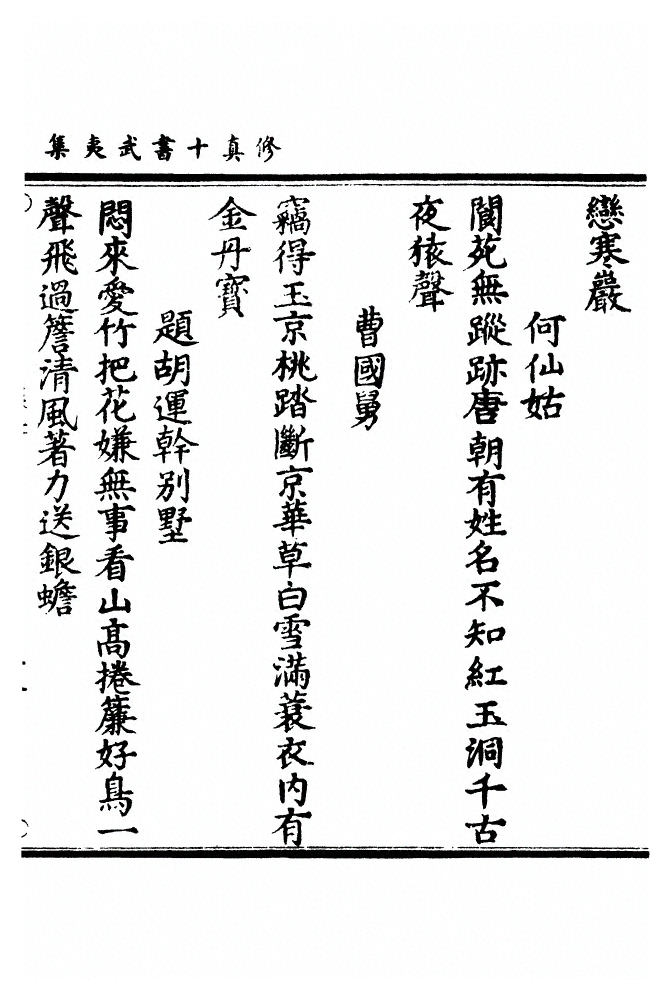 修真十書武夷集
戀寒巖
何仙姑
閬苑無蹤跡唐朝有姓名不知紅玉洞千古
夜猿聲
曹國舅
竊得玉京桃踏斷京華草白雪滿蓑衣內有
金丹寶
題胡運幹別墅
悶來愛竹把花嫌無事看山高捲簾好鳥一
聲飛過簷清風著力送銀蟾